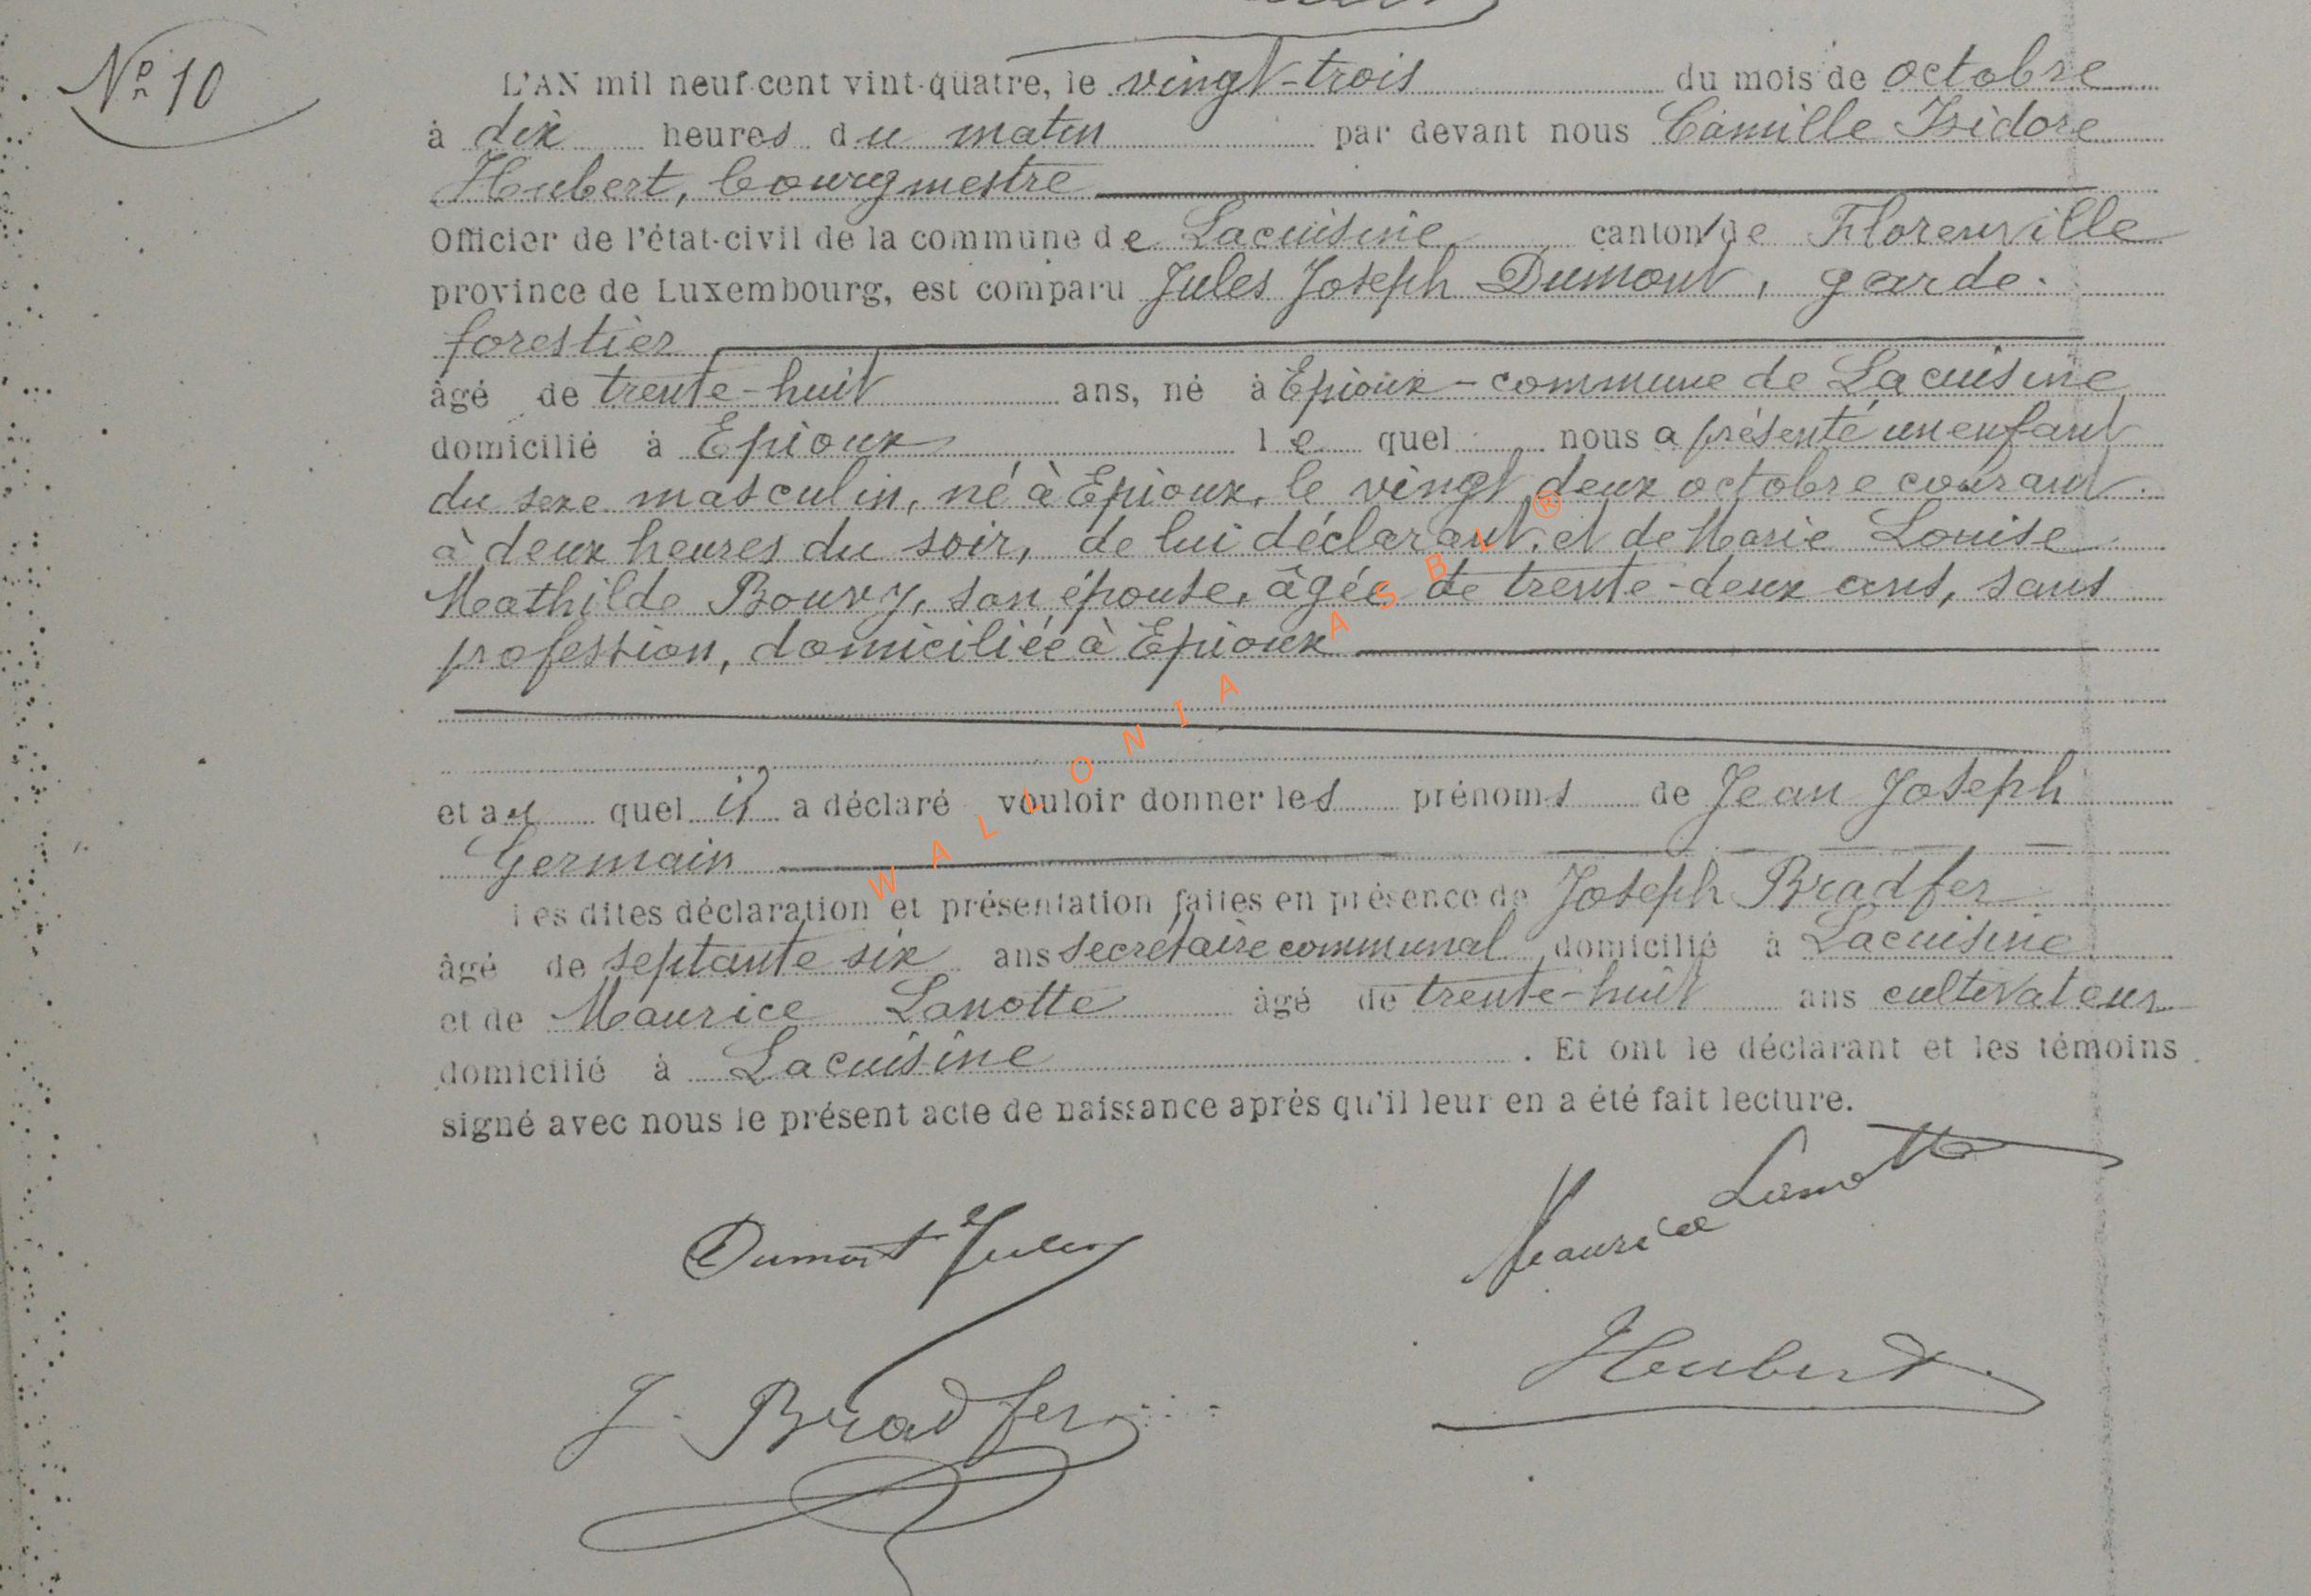 Nº 10
L'AN mil neuf cent vint-quatre, le vingt-trois du mois de octobre
à dix heures du matin par devant nous Camille Isidore
Hubert, bourgmestre
Officier de l'état-civil de la commune de Lacuisine canton de Florenville
province de Luxembourg, est comparu Jules Joseph Dumont, garde-
forestier
âgé de trente-huit ans, né à Epioux - commune de Lacuisine
domicilié à Epioux lequel nous a présenté un enfant
du sexe masculin, né à Epioux, le vingt deux octobre courant
à deux heures du soir, de lui déclarant, et de Marie Louise
Mathilde Bouvy, son épouse, âgée de trente-deux ans, sans
profession, domiciliée à Epioux
et au quel il a déclaré vouloir donner les prénoms de Jean Joseph
Germain
Les dites déclaration et présentation faites en présence de Joseph Bradfer
âgé de septante six ans secrétaire communal domicilié à Lacuisine
et de Maurice Lanotte âgé de trente-huit ans cultivateur
domicilié à Lacuisine. Et ont le déclarant et les témoins
signé avec nous le présent acte de naissance après qu'il leur en a été fait lecture.
Dumont Jules
Maurice Lamotte
J. Bradfer
Hubert
WALLONIA ASBL ®